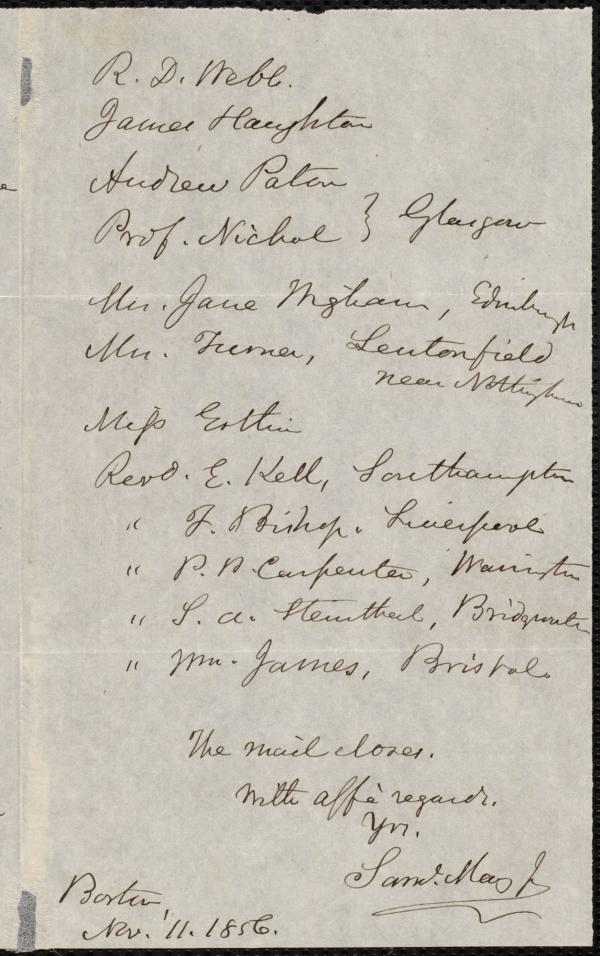 R. D. Webb.
James Haughton
Andrew Paton
Prof. Nichol } Glasgow
Mrs. Jane Wigham, Edinburgh
Mrs. Turner, Lentonfield
near Nottingham
Miss Estlin
Revd. E. Kell, Southampton
" F. Bishop. Liverpool
" P. P. Carpenter, Warrington
" S. A. Steinthal, Bridgwater
" Wm. James, Bristol.
The mail closes.
With affe regards.
Yrs.
Saml. May Jr
Boston,
Nov. 11. 1856.